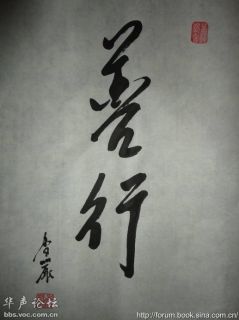 善行
华声论坛
bbs.voc.com.cn
http://forum.book.sina.com.cn